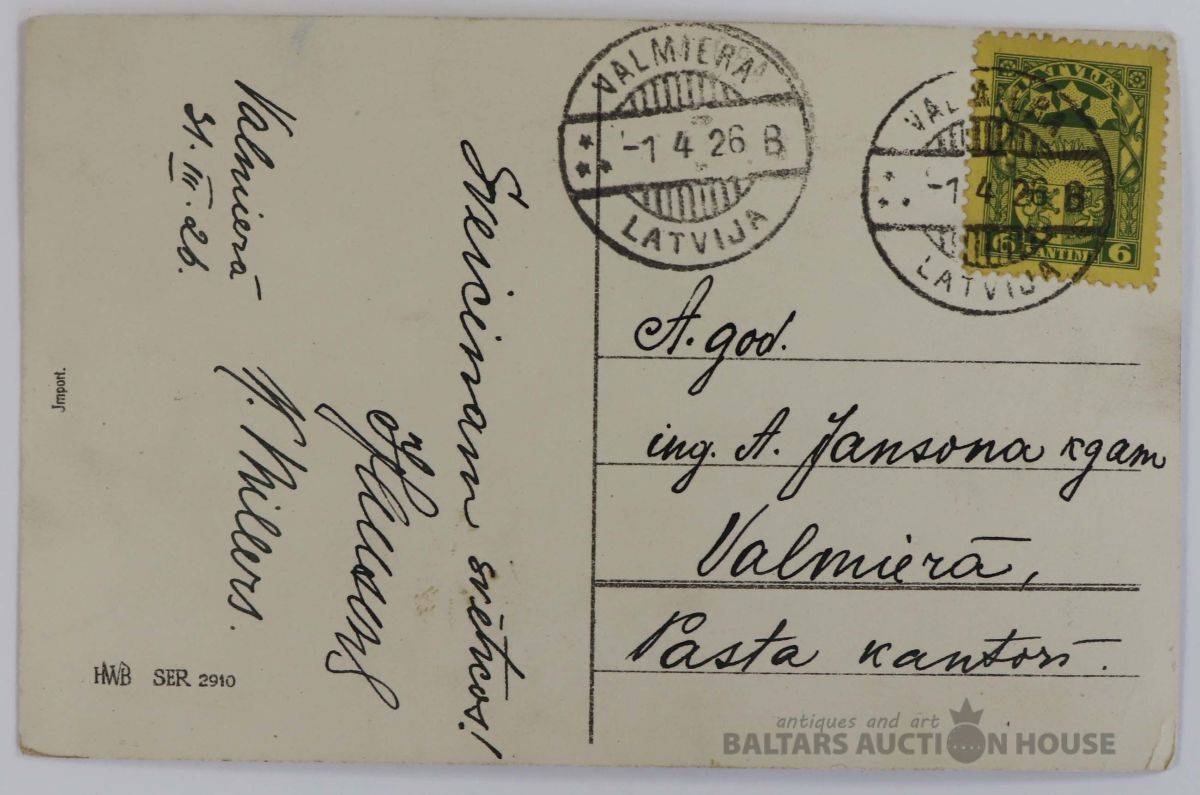 VALMIERA
-1 4 26 B
LATVIJA
VALMIERA
-1 4 26 B
LATVIJA
LATVIJA
6 SANTIMI 6
Valmierā
31. III. 26.
Sveicinam svētkos!
W. Millers.
A. god.
ing. A. Jansona kgam
Valmierā,
Pasta kantorī.
Jmport.
HWB SER 2910
antiques and art
BALTARS AUCTION HOUSE